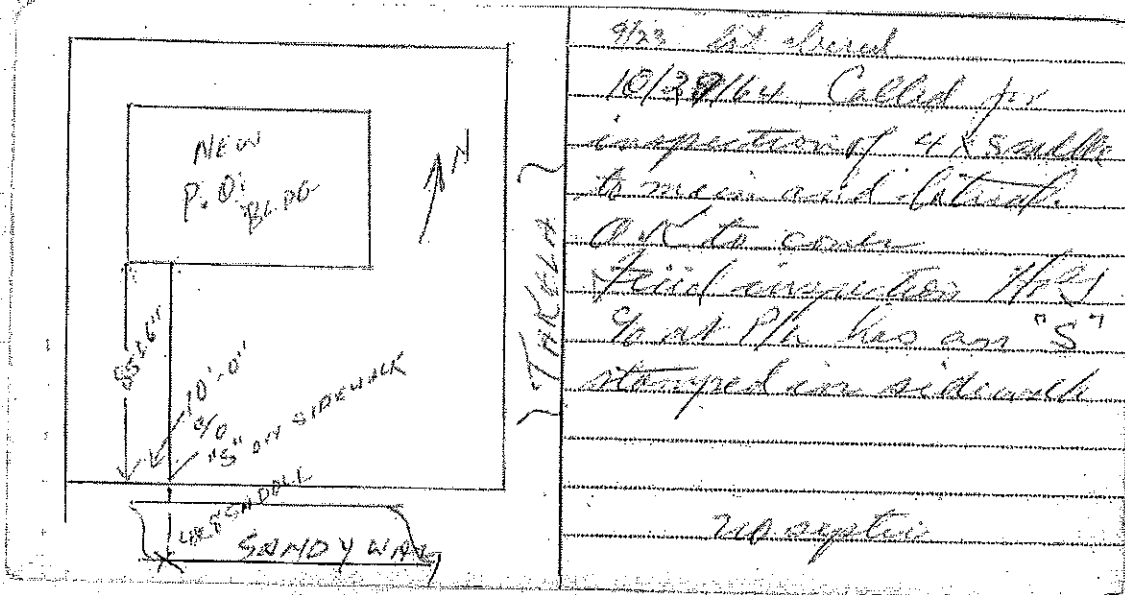 NEW
P.O.
BLDG
N
55'6"
10'-0"
c/o
"S" ON SIDEWALK
4X8 SADDLE
SANDY WAY
TAKELA
9/23
10/29/64 Called for
inspection of 4x8 saddle
to main and lateral
OK to cover
inspection
c/o at P/L has an "S"
stamped in sidewalk
no septic